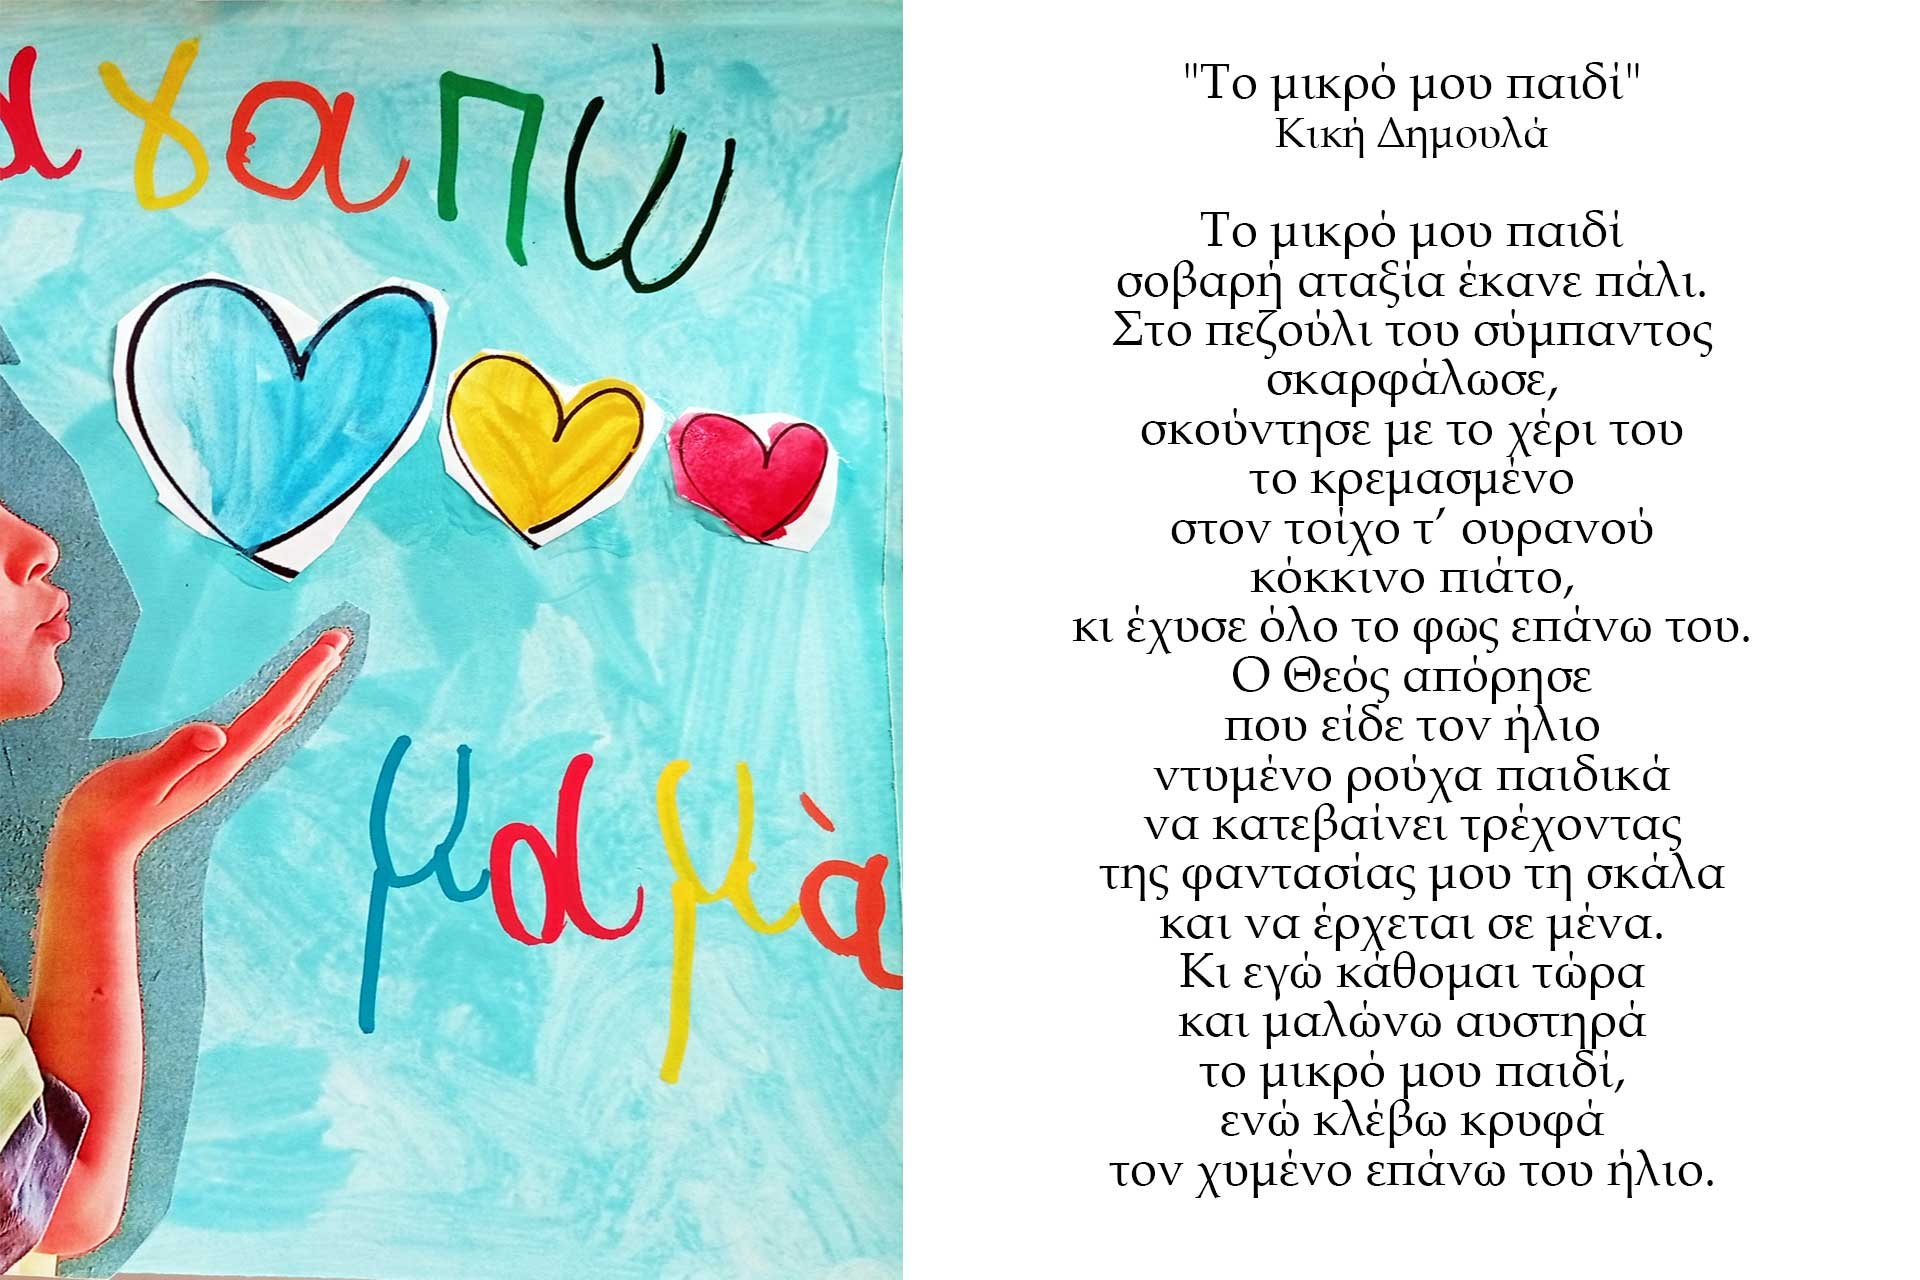 αγαπώ
μαμὰ
"Το μικρό μου παιδί"
Κική Δημουλά
Το μικρό μου παιδί
σοβαρή αταξία έκανε πάλι.
Στο πεζούλι του σύμπαντος
σκαρφάλωσε,
σκούντησε με το χέρι του
το κρεμασμένο
στον τοίχο τ’ ουρανού
κόκκινο πιάτο,
κι έχυσε όλο το φως επάνω του.
Ο Θεός απόρησε
που είδε τον ήλιο
ντυμένο ρούχα παιδικά
να κατεβαίνει τρέχοντας
της φαντασίας μου τη σκάλα
και να έρχεται σε μένα.
Κι εγώ κάθομαι τώρα
και μαλώνω αυστηρά
το μικρό μου παιδί,
ενώ κλέβω κρυφά
τον χυμένο επάνω του ήλιο.